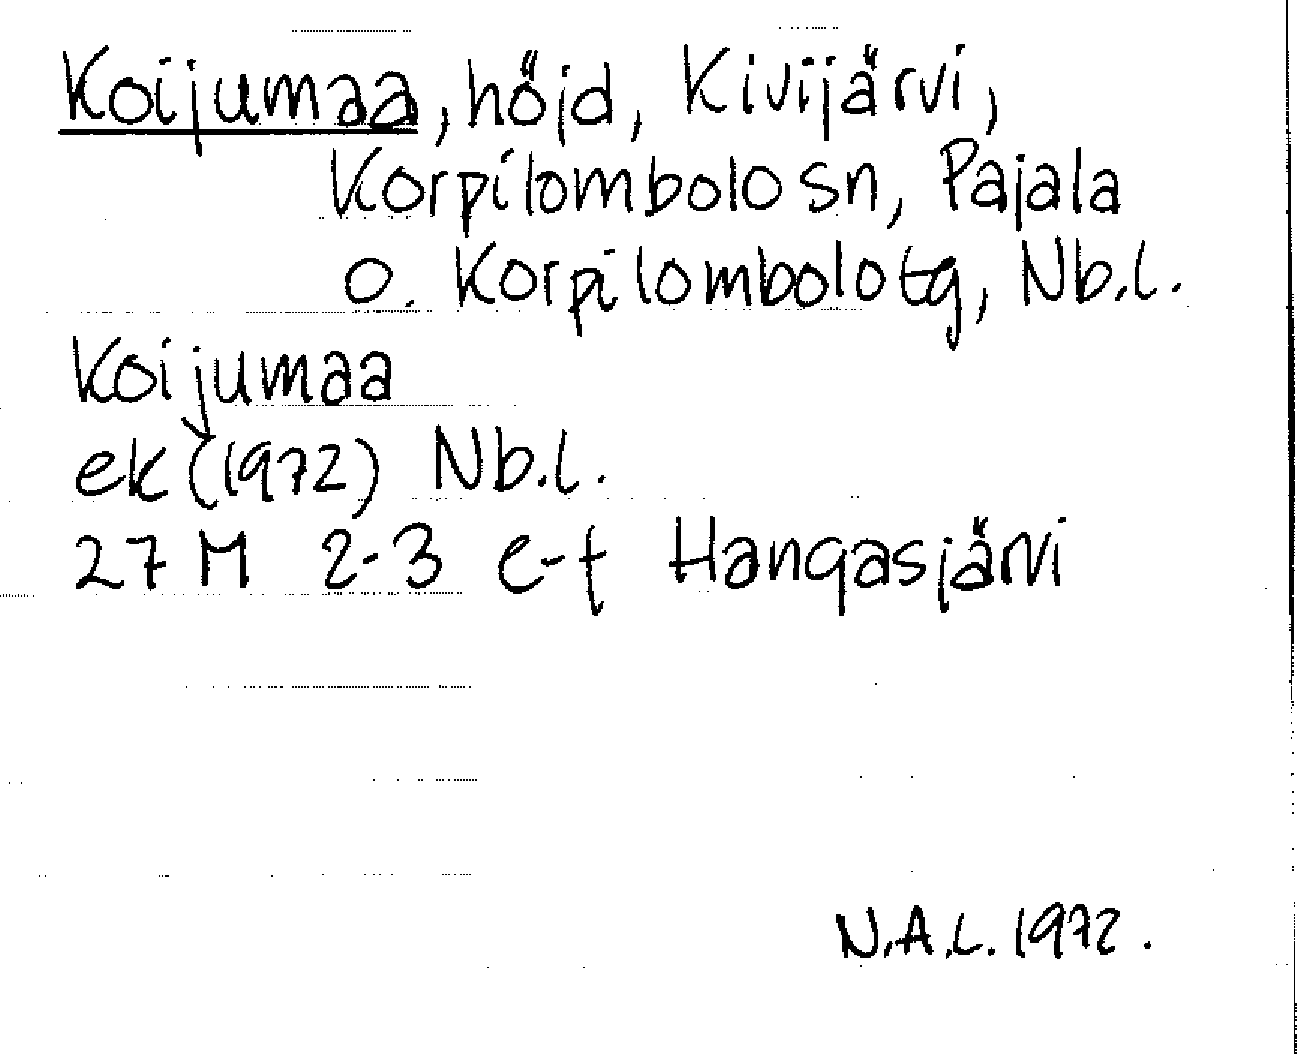 Koijumaa, höjd, Kivijärvi,
Korpilombolo sn, Pajala
o. Korpilombolo tg, Nb.l.
Koijumaa
ek (1972) Nb.l.
27 M 2-3 e-f Hangasjärvi
N.A.L. 1972.